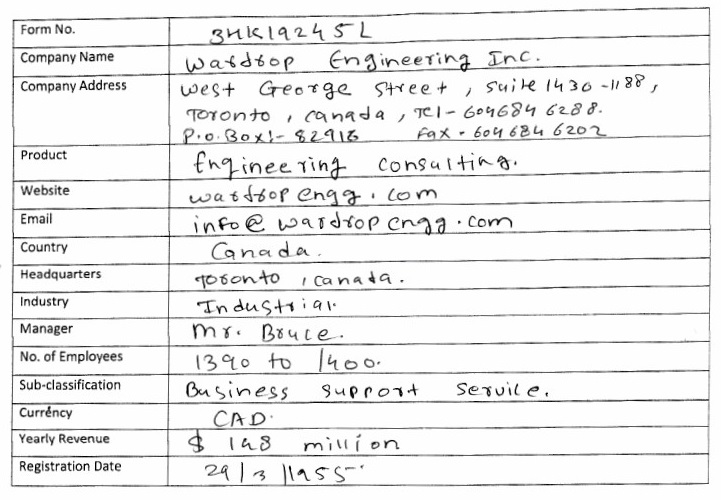 Form No. 3HK19245L
Company Name Wardrop Engineering Inc.
Company Address West George Street, Suite 1430-1188,
Toronto, Canada, Tel-6046846288.
P.O.Box:- 82916 Fax-6046846202
Product Engineering Consulting.
Website wardropengg.com
Email info@wardropengg.com
Country Canada.
Headquarters Toronto, Canada.
Industry Industrial.
Manager Mr. Bruce.
No. of Employees 1390 to 1400.
Sub-classification Business Support Service.
Currency CAD.
Yearly Revenue $ 148 million
Registration Date 29/3/1955